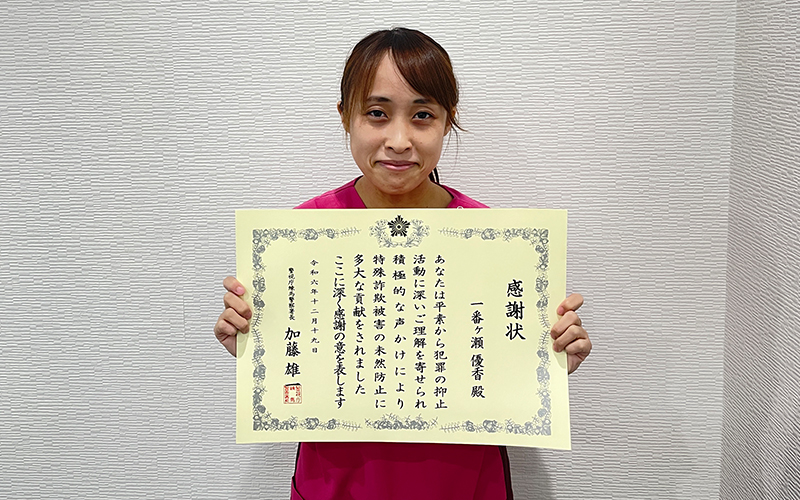 感謝状
一番ヶ瀬 優香 殿
あなたは平素から犯罪の抑止
活動に深いご理解を寄せられ
積極的な声かけにより
特殊詐欺被害の未然防止に
多大な貢献をされました
ここに深く感謝の意を表します
令和六年十二月十九日
警視庁練馬警察署長
加藤 雄